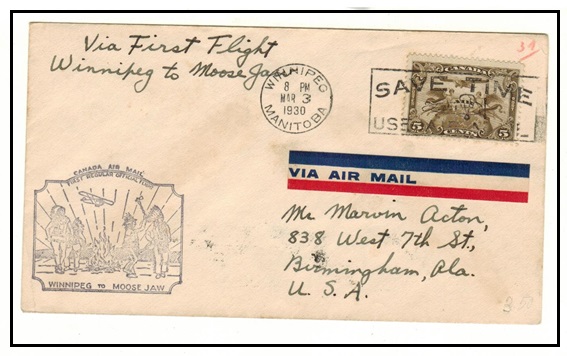 Via First Flight
Winnipeg to Moose Jaw
31
WINNIPEG
8 PM
MAR 3
1930
MANITOBA
SAVE TIME
USE
CANADA
5 CENTS 5
VIA AIR MAIL
CANADA AIR MAIL
FIRST REGULAR OFFICIAL FLIGHT
WINNIPEG TO MOOSE JAW
Mr Marvin Acton,
838 West 7th St.,
Birmingham, Ala.
U. S. A.